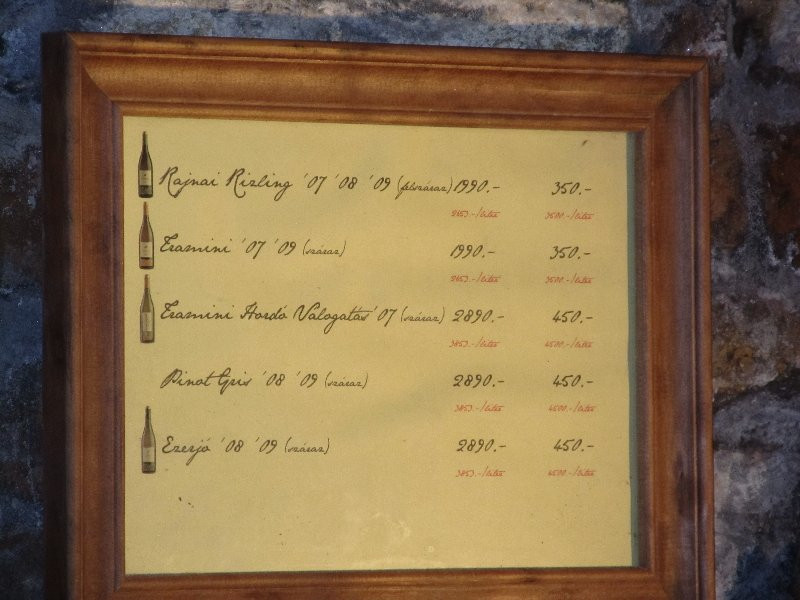 Rajnai Rizling '07 '08 '09 (félszáraz) 1990.- 350.-
2653.-/liter 3500.-/liter
Tramini '07 '09 (száraz) 1990.- 350.-
2653.-/liter 3500.-/liter
Tramini Hordó Válogatás '07 (száraz) 2890.- 450.-
3853.-/liter 4500.-/liter
Pinot Gris '08 '09 (száraz) 2890.- 450.-
3853.-/liter 4500.-/liter
Ezerjó '08 '09 (száraz) 2890.- 450.-
3853.-/liter 4500.-/liter